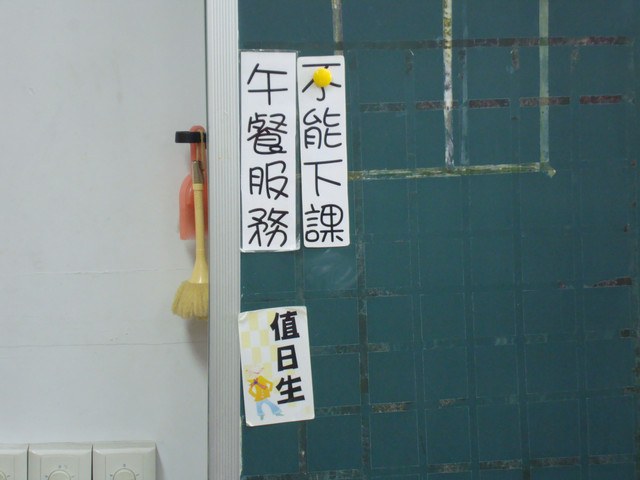 午餐服務
不能下課
值日生